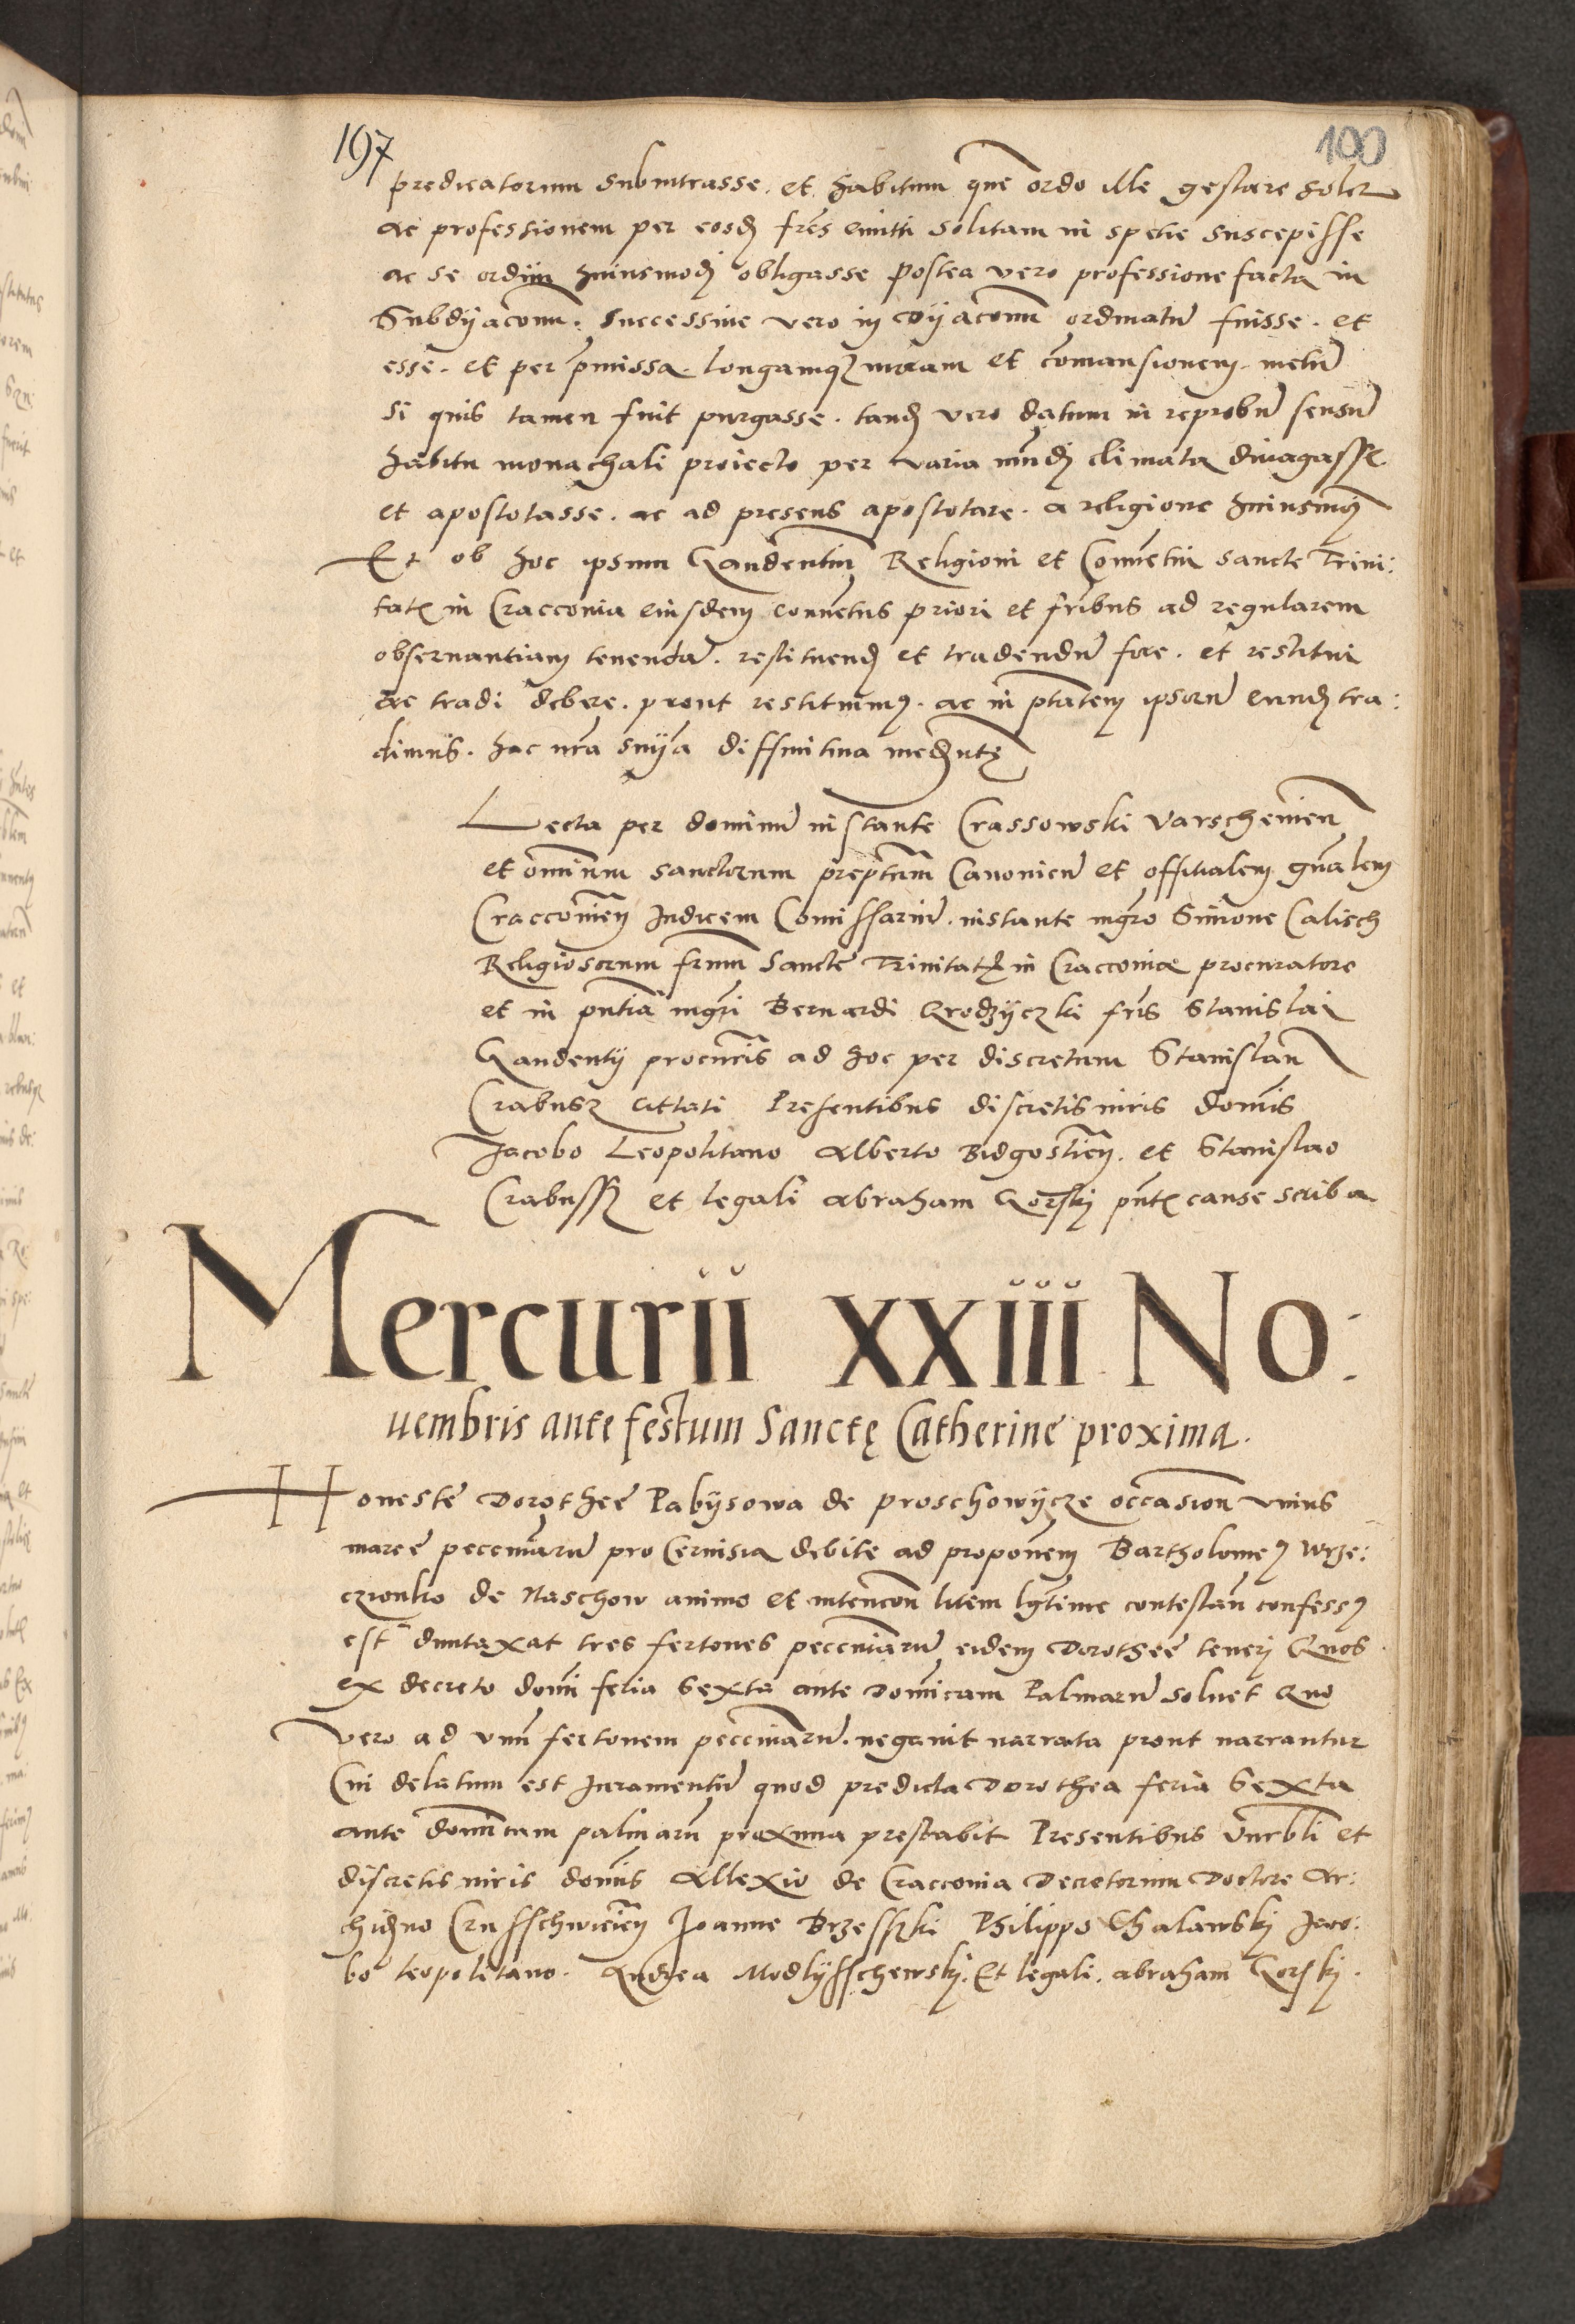 197
100
predicatorum subintrasse. et habitum quē ordo ille gestare solet
ac professionem per eosdē frēs emitti solitam in spetie suscepisse
ac se ordini huiusmodj obligasse postea vero professione facta in
Subdyaconū. successiue vero in dyaconū ordinatū fuisse. et
esse. et per p̄missa. longamqꝫ moram et cōmansionem. metū
si quis tamen fuit purgasse. tandē vero datum in reprobū sensū
habitu monachali proiecto per varia mūdj climata diuagasse
et apostotasse. ac ad presens apostotare. a religione huiusmōj
Et ob hoc ipsum Gaudentiū Religioni et Conuētui sancte Trini:
tatꝭ in Cracconia eiusdem conuētus priori et frībus ad regularem
obseruantiam tenendā. restituendū et tradendū fore. et restitui
ac tradi debere. prout restituimꝰ. ac in ptātem ipsorū eundē tra:
dimus. hac nrā sniā diffinitiua mediāte
Lecta per dominū instante Crassowski Varscheuien̄
et omnium sanctorum prepītum Canonicū et offitialem gnālem
Cracconieñ Iudicem Comissariū. instante mgrō Simone Calisch
Religiosorum frūm Sancte Trinitatꝭ in Cracconia procuratore
et in pn̄tia mgrī Bernardi Grodzyczki frīs Stanislai
Gaudentij procurīs ad hoc per discretum Stanislaū
Crabusz cittati Presentibus discretis viris domīs
Jacobo Leopolitano Alberto Bidgostien̄. et Stanislao
Crabussz et legali Abraham Gorskj pn̄tꝭ cause scriba
Mercurii XXIII No:
uembris ante festum Sanctę Catherine proxima.
Honeste Dorothee Pabysowa de proschowycze occasion̄ vnius
marce peccuniarū pro Ceruisia debite ad proponem̄ Bartholomeꝰ Wrze:
czionko de Naschow animo et intencon̄ litem lgtīme contestan̄ confessꝰ
est duntaxat tres fertones peccuniarū eidem Dorothee tenerj Quos
ex decreto domī feria Sexta ante Domīcam Palmarū soluet Quo
vero ad vnū fertonem peccuniarū. negauit narrata prout narrantur
Cui delatum est Iuramentū quod predicta Dorothea feria Sexta
ante domīcam palmarū proxima prestabit Presentibus Vnrbli et
discretis viris domīs Allexio de Cracconia Decretorum Doctore Ar:
chidno Crusschwicien̄ Joanne Brzesszki Philippo Chalawskj Jaco:
bo leopolitano. Andrea Modlysschewskj. Et legali. abraham Gorskj.